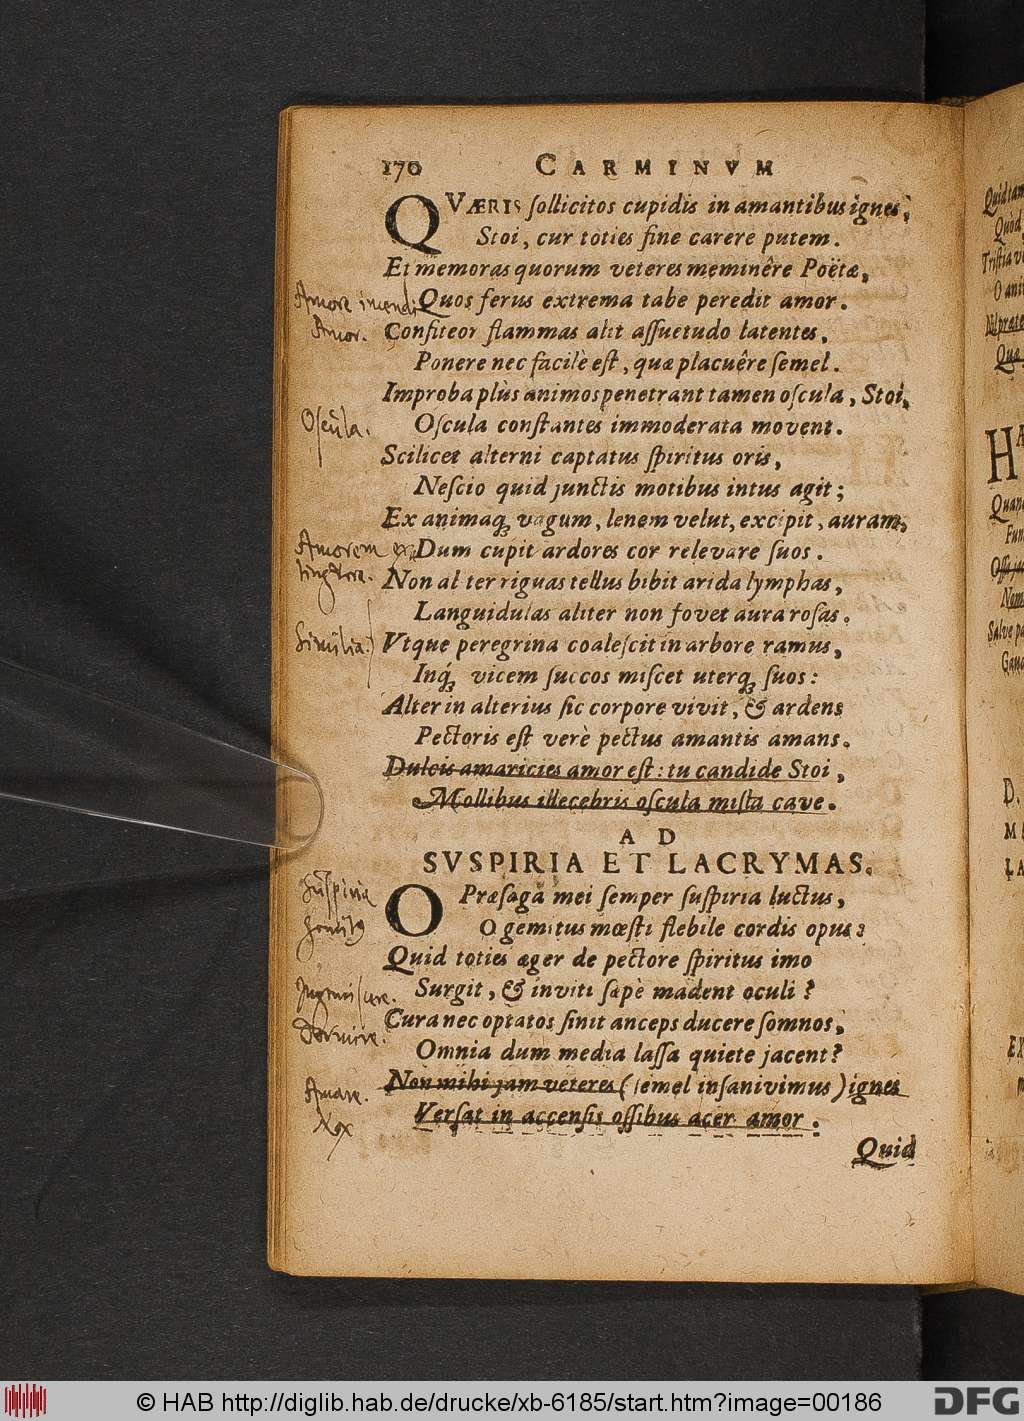 170 CARMINVM
QVÆRIS ſollicitos cupidis in amantibus ignes,
Stoi, cur toties ſine carere putem.
Et memoras quorum veteres meminêre Poëtæ,
Quos ferus extrema tabe peredit amor.
Confiteor flammas alit aſſuetudo latentes,
Ponere nec facilè eſt, quæ placuêre ſemel.
Improba plùs animos penetrant tamen oſcula, Stoi,
Oſcula conſtantes immoderata movent.
Scilicet alterni captatus ſpiritus oris,
Neſcio quid junctis motibus intus agit;
Ex animaq́; vagum, lenem velut, excipit, auram,
Dum cupit ardores cor relevare ſuos.
Non al ter riguas tellus bibit arida lymphas,
Languidulas aliter non fovet aura roſas.
Vtque peregrina coaleſcit in arbore ramus,
Inq́; vicem ſuccos miſcet uterq́; ſuos:
Alter in alterius ſic corpore vivit, & ardens
Pectoris eſt verè pectus amantis amans.
Dulcis amaricies amor eſt: tu candide Stoi,
Mollibus illecebris oſcula miſta cave.
AD
SVSPIRIA ET LACRYMAS.
O Præſaga mei ſemper ſuſpiria luctus,
O gemitus mœſti flebile cordis opus:
Quid toties æger de pectore ſpiritus imo
Surgit, & inviti ſæpè madent oculi?
Cura nec optatos ſinit anceps ducere ſomnos,
Omnia dum media laſſa quiete jacent?
Non mihi jam veteres (ſemel inſanivimus) ignes
Verſat in accenſis oſſibus acer amor.
Quid
Amore incendi
Amor.
Oſcula.
Amorem ex
tingvere.
Similia.
Suſpiria
Gemitus
Ingemiſcere.
Dormire.
Amare.
Quod
O
Qua
HA
Quan
Fun
Nom
Salve pa
D.
M
LA
EX
© HAB http://diglib.hab.de/drucke/xb-6185/start.htm?image=00186
DFG